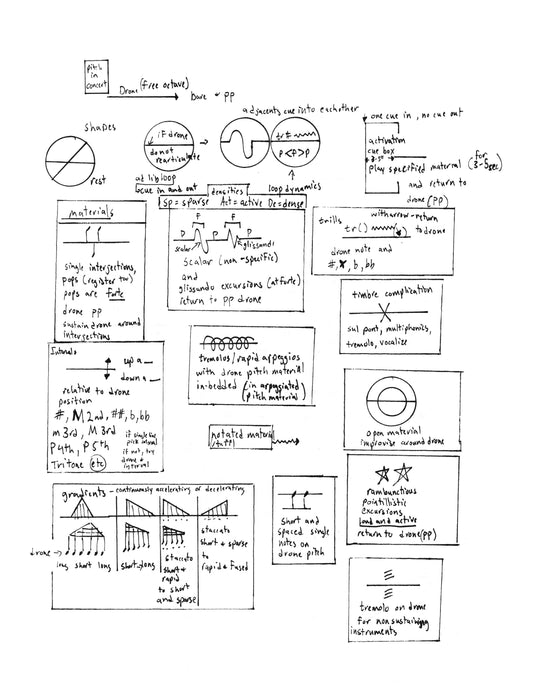 pitch
in
concert
Drone (free octave)
Bare + PP
shapes
rest
if drone
do not
rearticulate
ad lib loop
cue in and out
adjacents cue into eachother
tr #
p<F>p
loop dynamics
one cue in, no cue out
activation
cue box
3-5"
Play specified material (for 3-5sec)
and return to
drone (PP)
densities
Sp = sparse Act = active De = dense
materials
single intersections,
pops (register tw)
pops are forte
drone PP
sustain drone around
intersections
F F
P P P
scalar glissando
Scalar (non-specific)
and
glissando excursions (at forte)
return to pp drone
trills with arrow-return
tr() to drone
drone note and
#, x, b, bb
timbre complication
sul pont, multiphonics,
tremolo, vocalize
Intervals
up a __
down a __
relative to drone
position
#, M 2nd, ##, b, bb
m 3rd, M 3rd
P 4th, P 5th
Tritone etc
if single line
pick interval
if not, try
drone +
interval
tremolos/rapid arpeggios
with drone pitch material
in-bedded (in arpeggiated
pitch material)
notated material
(staff)
open material
improvise around drone
gradients - continuously accelerating or decelerating
drone
long short long
short long
staccato
short +
rapid
to short
and sparse
staccato
short + sparse
to
rapid + fused
short and
spaced single
notes on
drone pitch
rambunctious
pointillistic
excursions
loud and active
return to drone (pp)
tremolo on drone
for nonsustaining
instruments